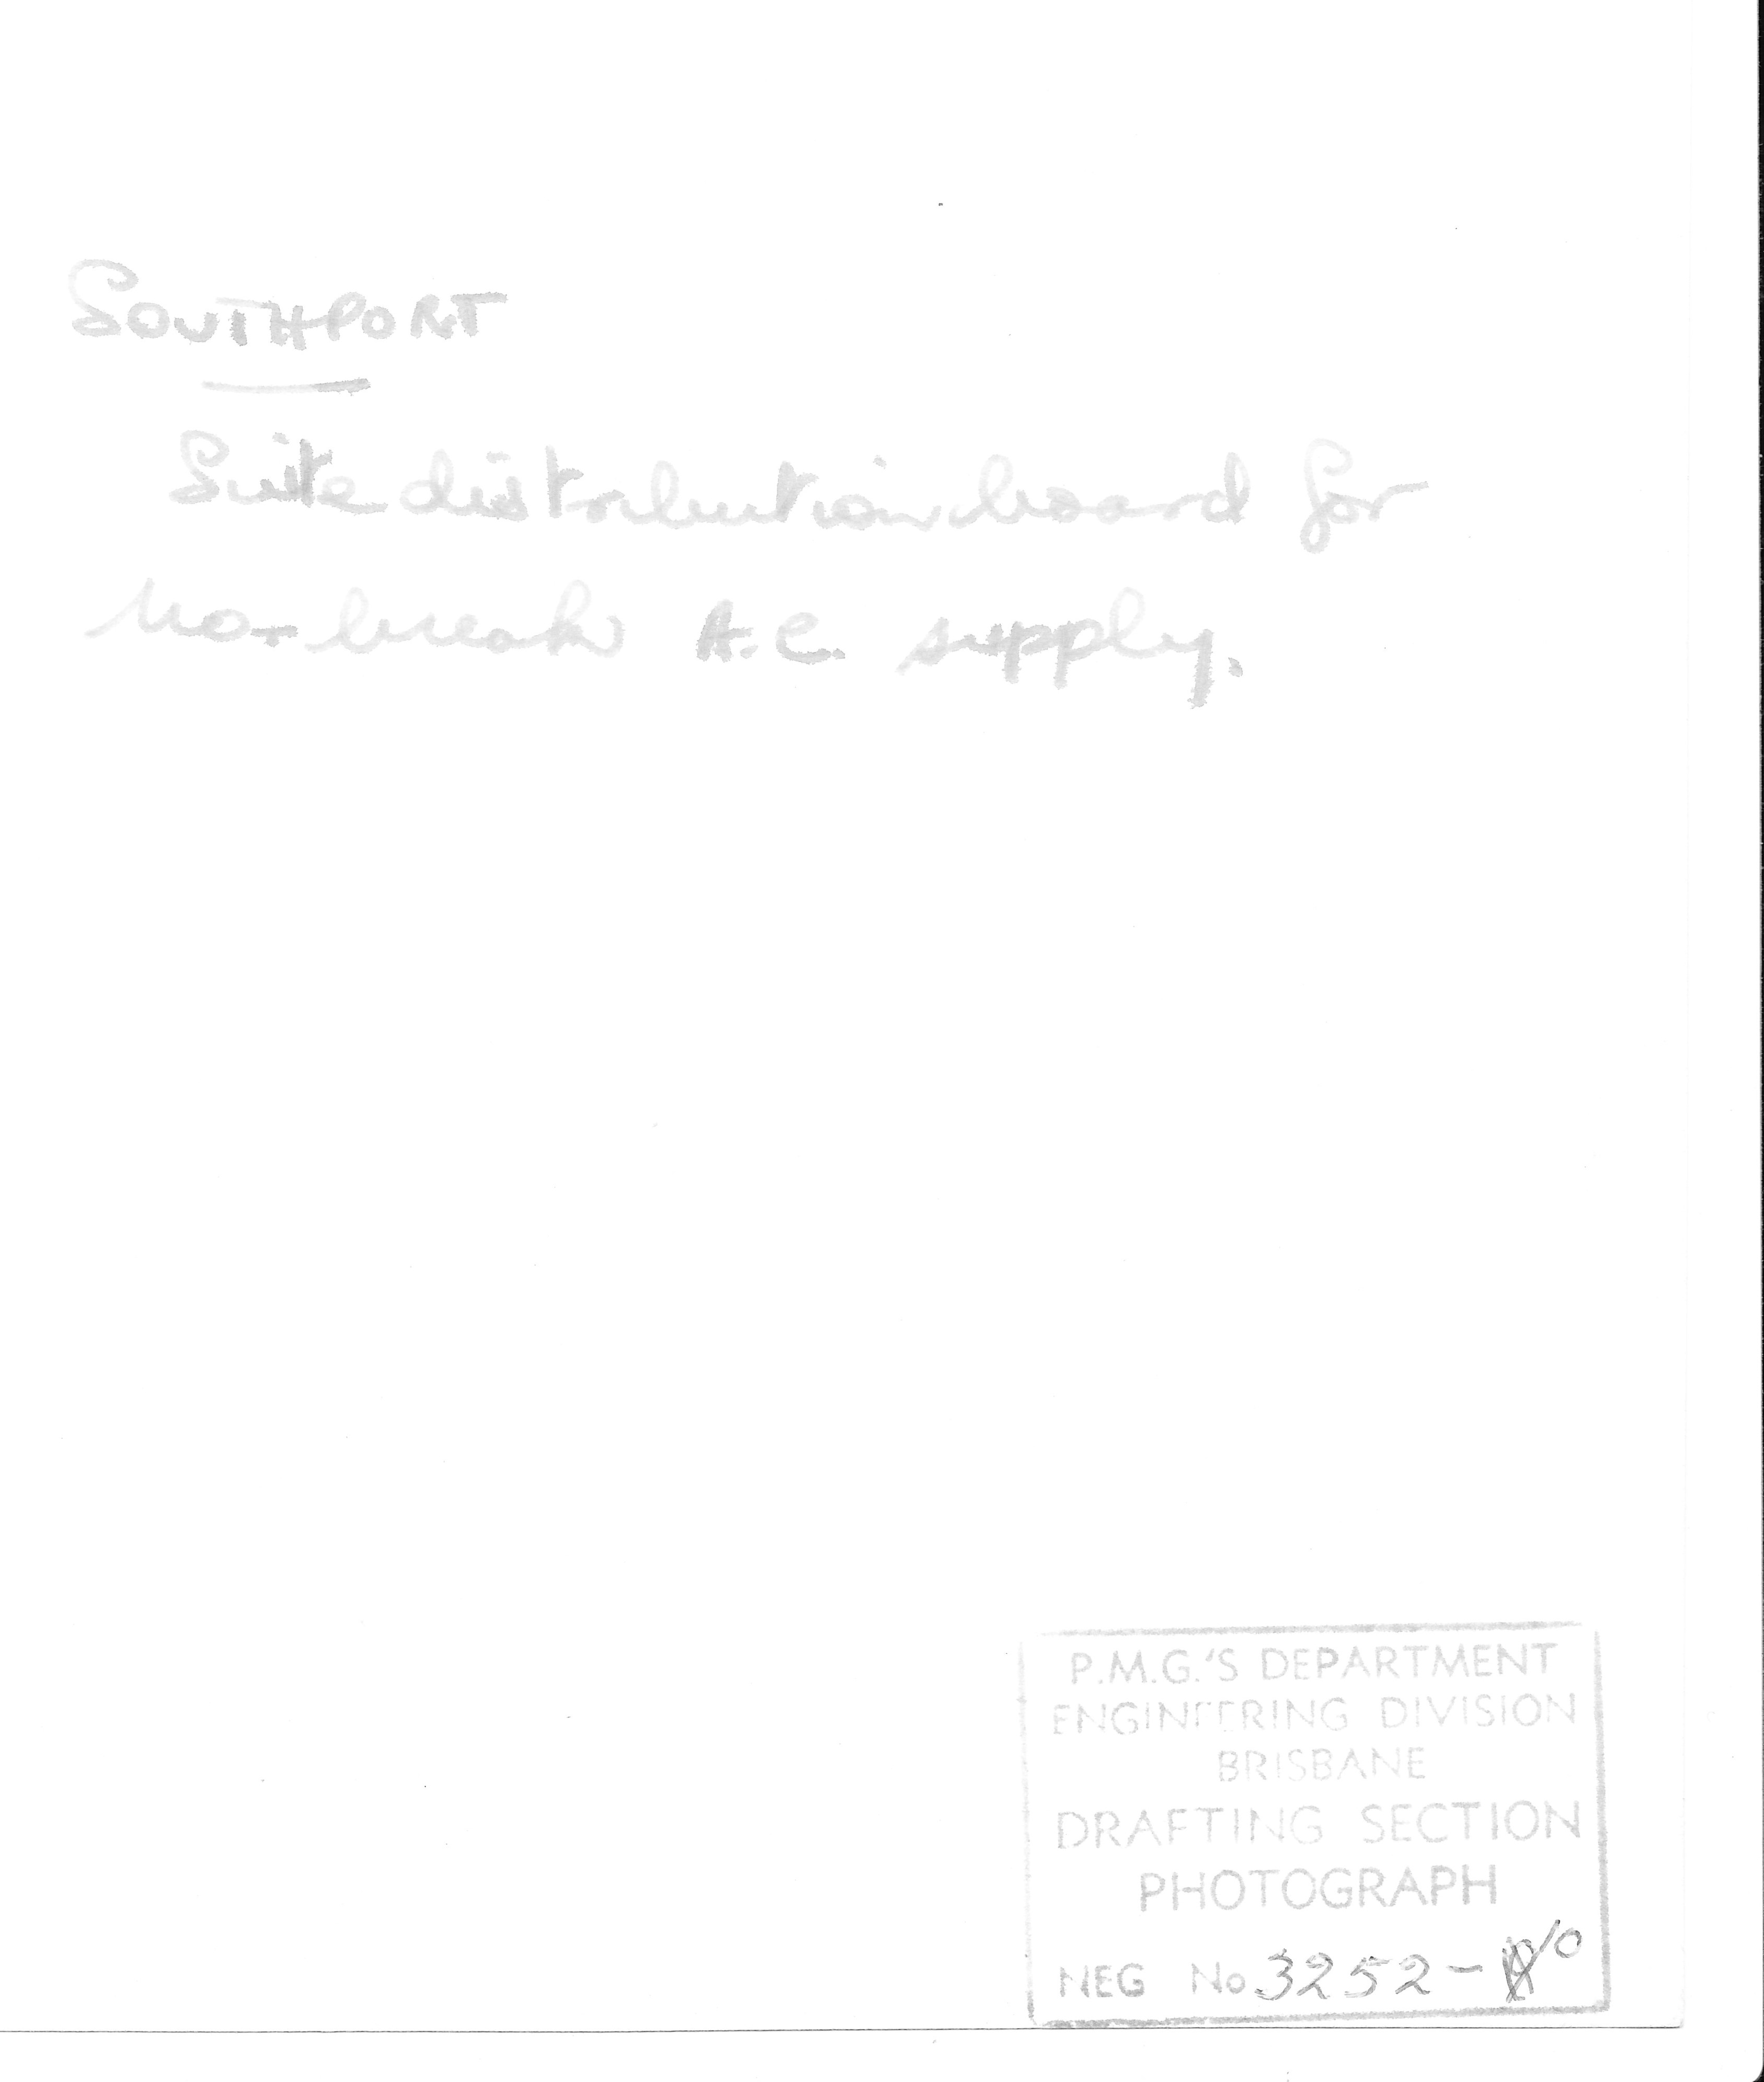 SOUTHPORT
Suite distribution board for
no-break A.C. supply.
P.M.G.'S DEPARTMENT
ENGINEERING DIVISION
BRISBANE
DRAFTING SECTION
PHOTOGRAPH
NEG No 3252-10